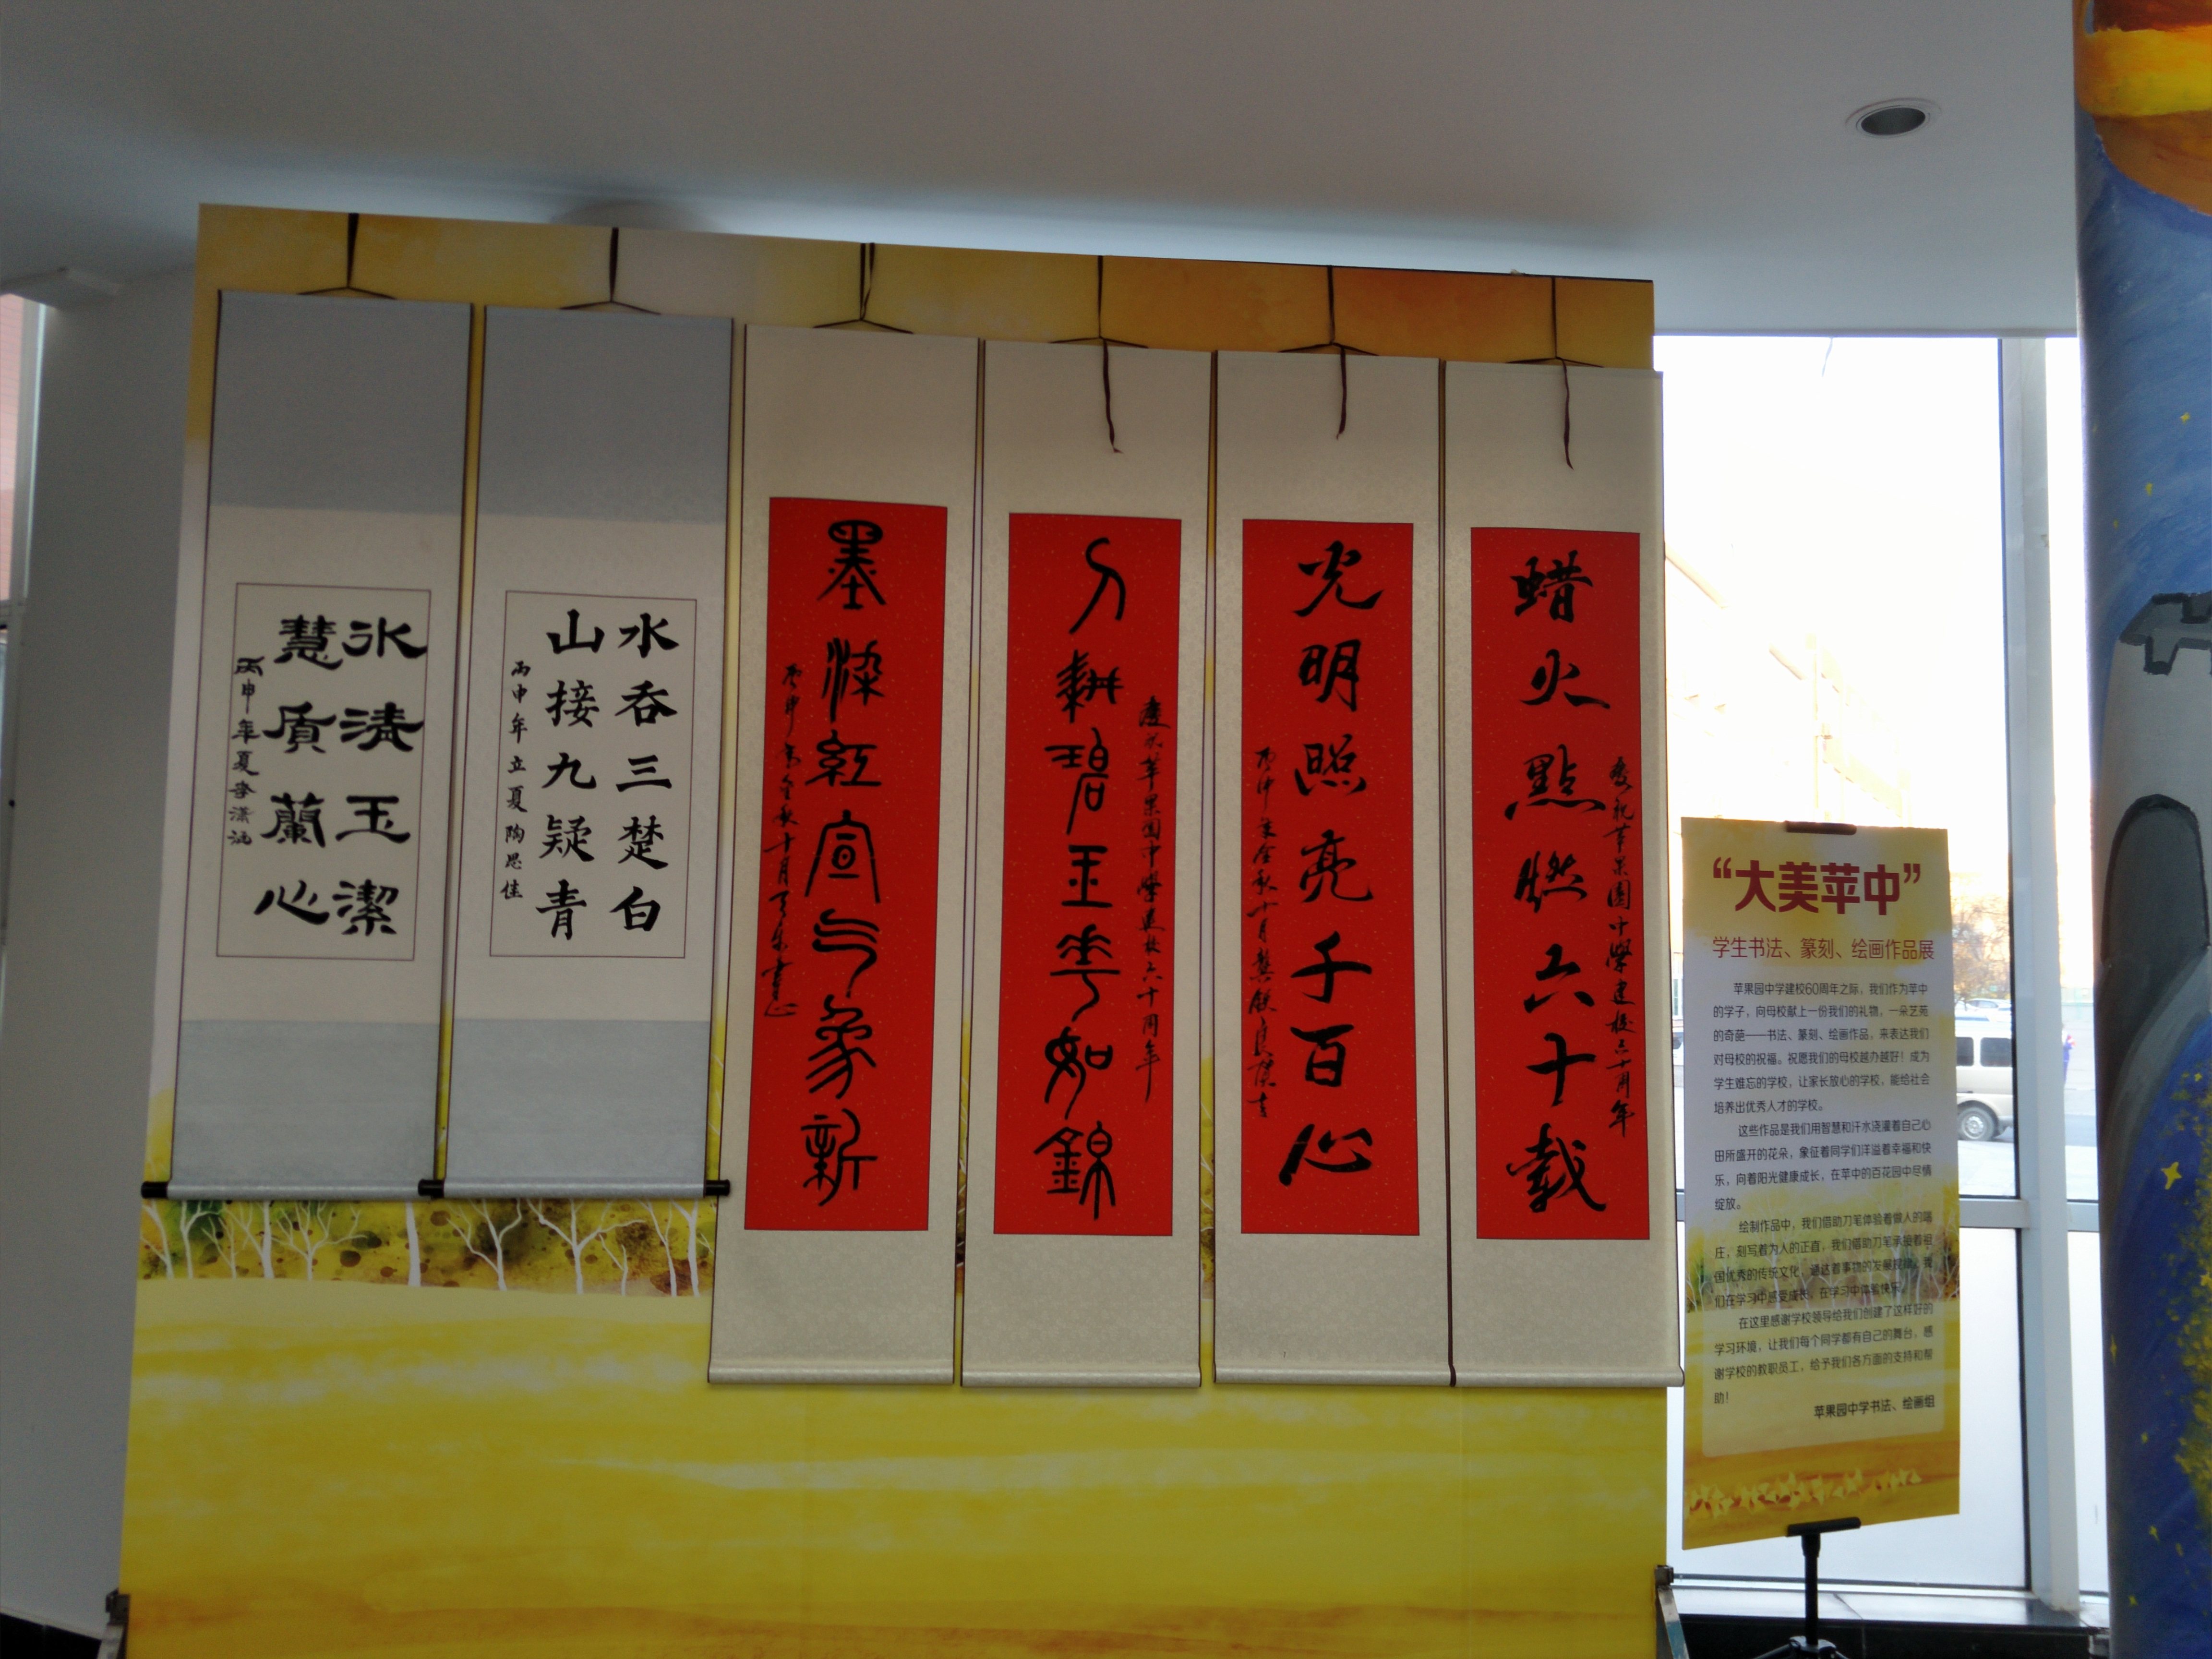 蜡火點燃六十载
慶祝苹果園中學建校六十周年
光明照亮千百心
丙申年金秋十月
刀耕碧玉花如錦
慶祝苹果園中學建校六十周年
墨染紅宣气象新
丙申年金秋十月
水吞三楚白
山接九疑青
丙申年立夏陶思佳
冰清玉潔
慧質蘭心
丙申年夏李潇涵
“大美苹中”
学生书法、篆刻、绘画作品展
苹果园中学建校60周年之际，我们作为苹中
的学子，向母校献上一份我们的礼物，一朵艺苑
的奇葩——书法、篆刻、绘画作品，来表达我们
对母校的祝福。祝愿我们的母校越办越好！成为
学生难忘的学校，让家长放心的学校，能给社会
培养出优秀人才的学校。
这些作品是我们用智慧和汗水浇灌着自己心
田所盛开的花朵，象征着同学们洋溢着幸福和快
乐，向着阳光健康成长，在苹中的百花园中尽情
绽放。
绘制作品中，我们借助刀笔体验着做人的端
庄，刻写着为人的正直，我们借助刀笔承接着祖
国优秀的传统文化，通达着事物的发展规律，我
们在学习中感受成长，在学习中体验快乐。
在这里感谢学校领导给我们创建了这样好的
学习环境，让我们每个同学都有自己的舞台，感
谢学校的教职员工，给予我们各方面的支持和帮
助！
苹果园中学书法、绘画组